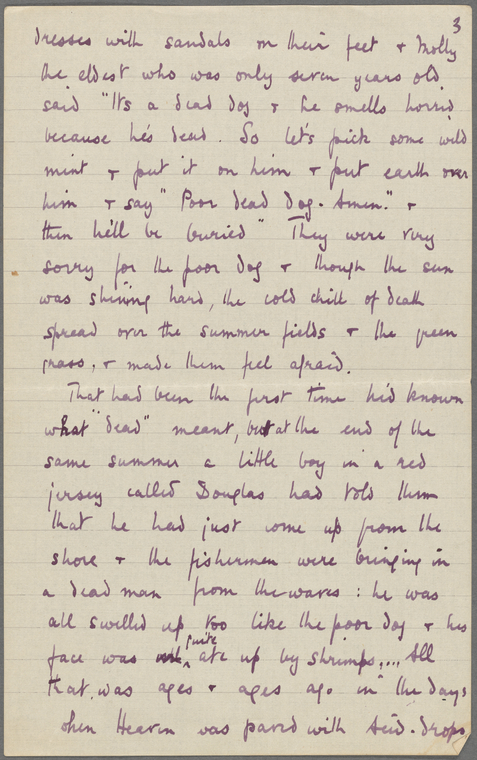 3
dresses with sandals on their feet + Molly
the eldest who was only seven years old
said "Its a dead dog + he smells horrid
because he's dead. So let's pick some wild
mint + put it on him + put earth over
him + say "Poor dead Dog. Amen." +
then he'll be buried" They were very
sorry for the poor dog + though the sun
was shining hard, the cold chill of death
spread over the summer fields + the green
grass, + made them feel afraid.
That had been the first time he'd known
what "dead" meant, but at the end of the
same summer a little boy in a red
jersey called Douglas had told them
that he had just come up from the
shore + the fishermen were bringing in
a dead man from the waves : he was
all swelled up too like the poor dog + his
face was quite ate up by shrimps.... All
that was ages + ages ago in the days
when Heaven was paved with Acid-drops